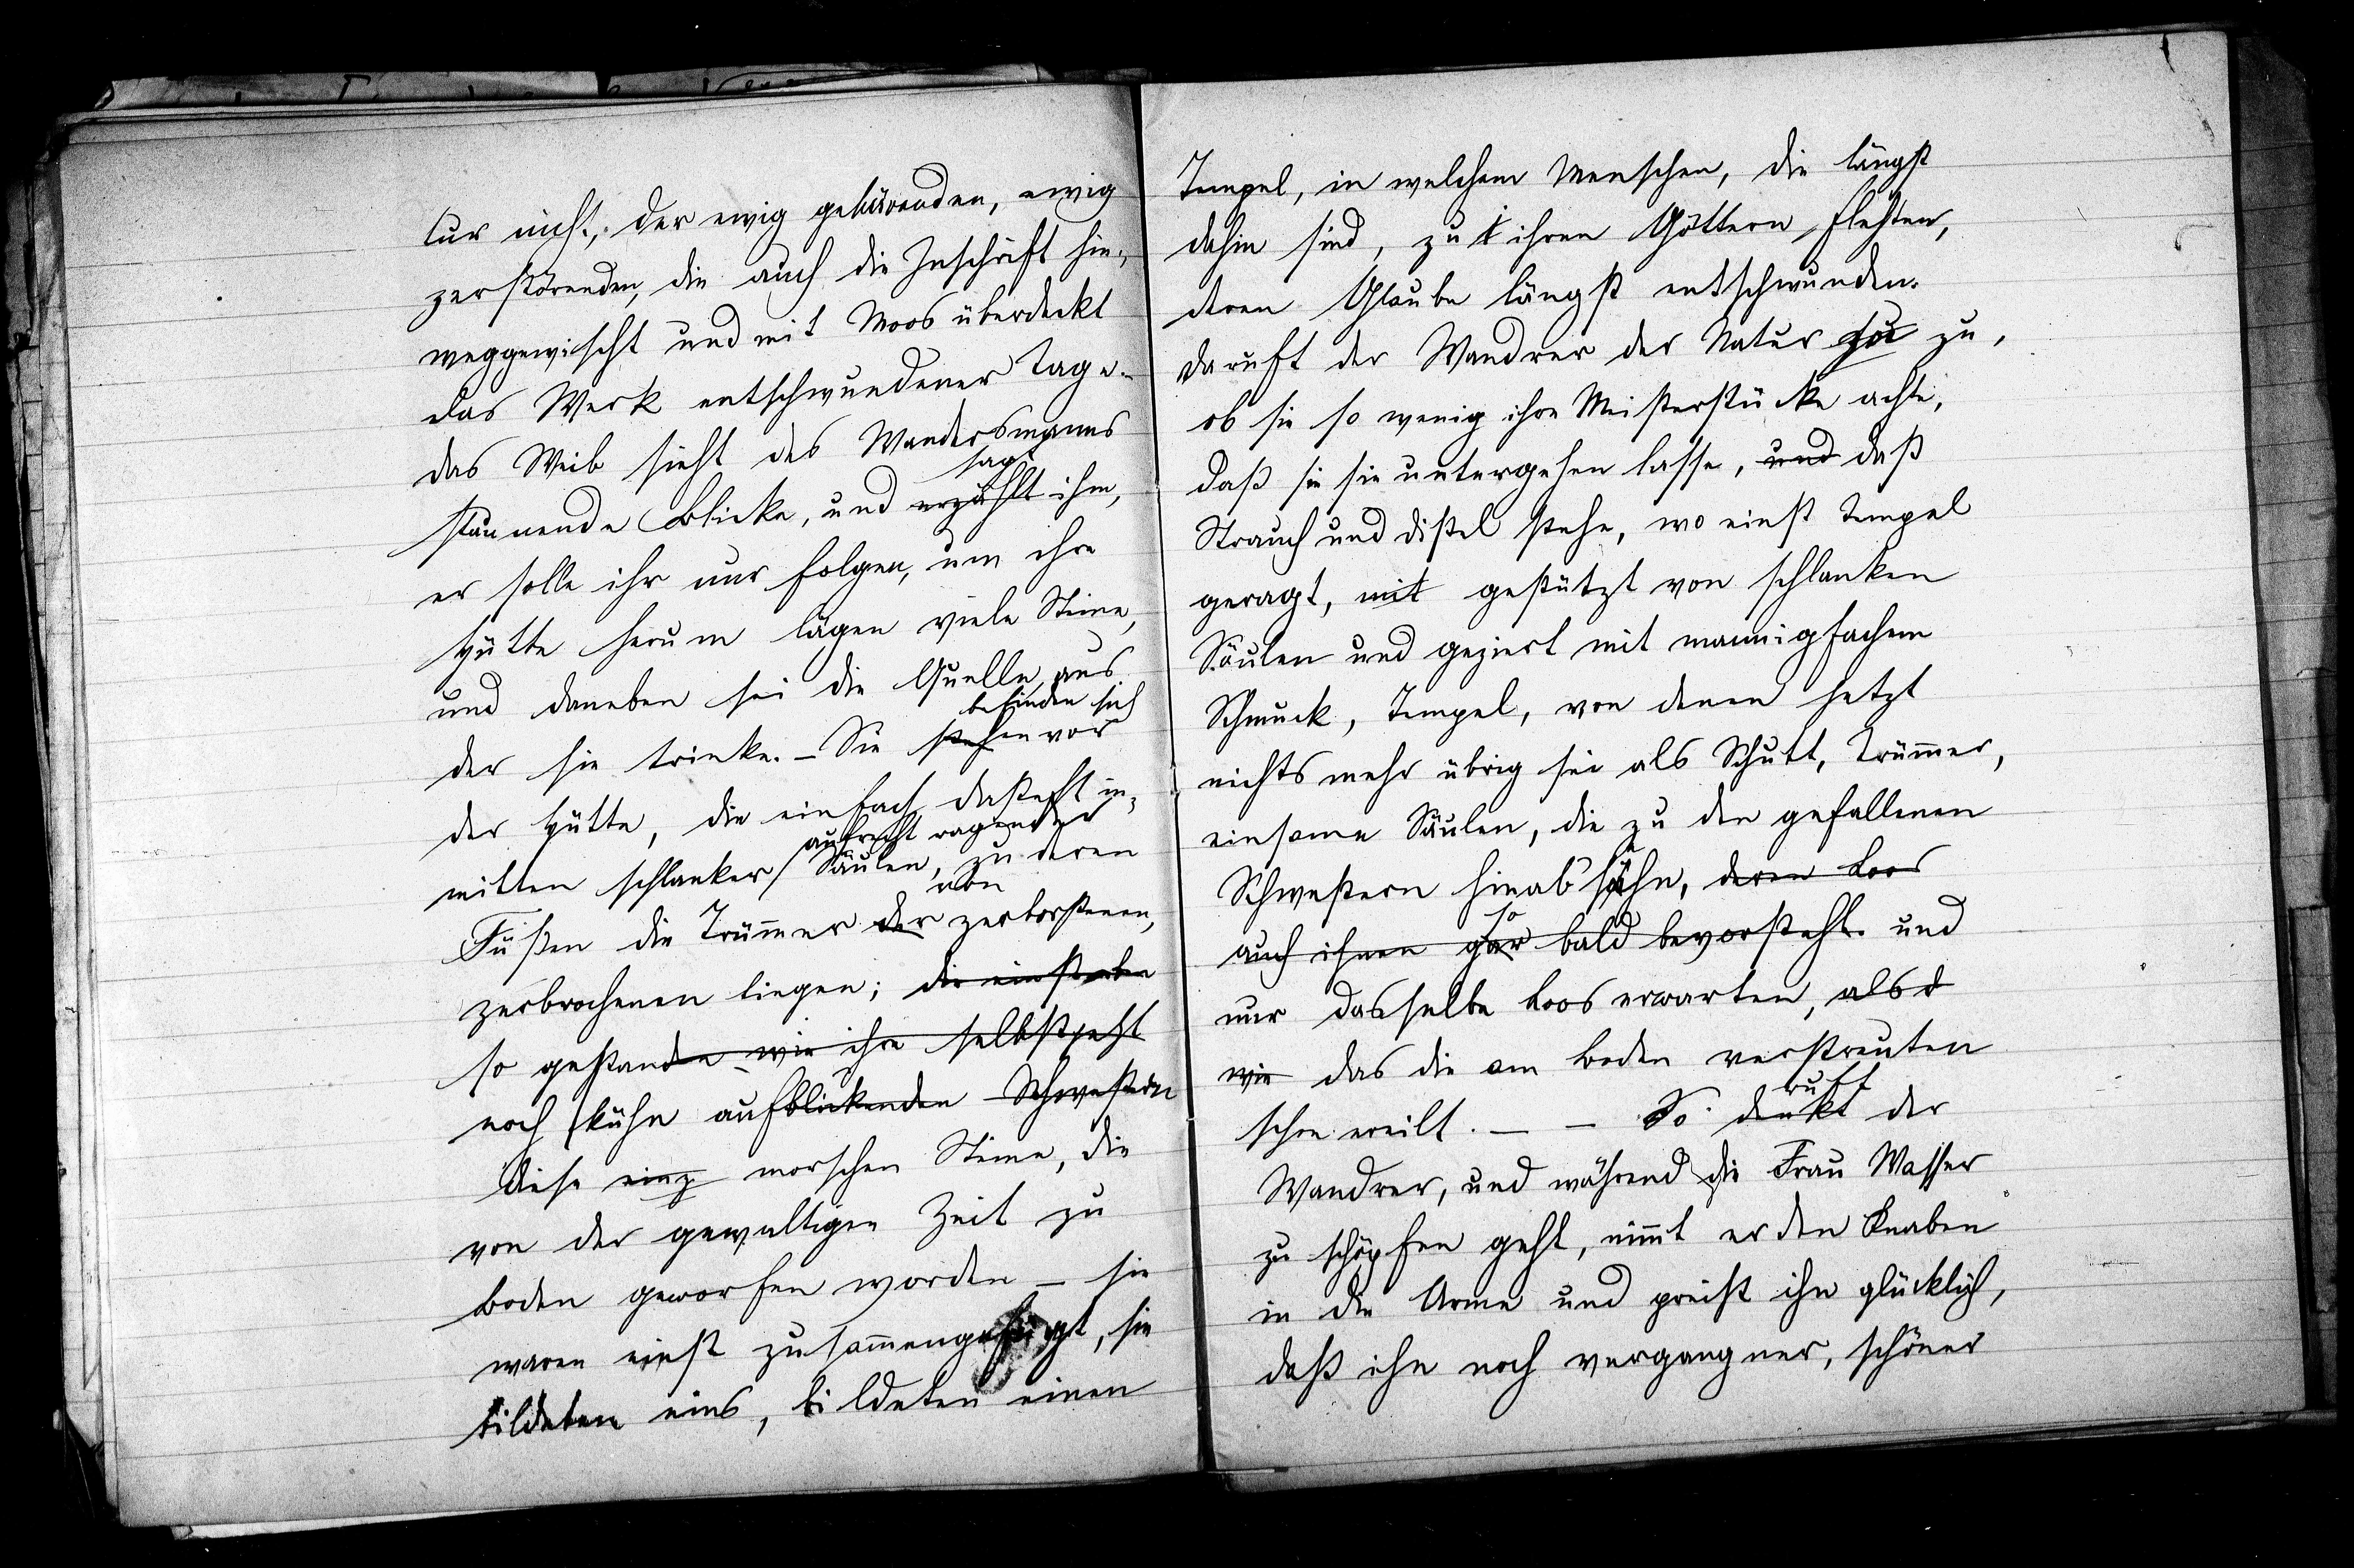 tur nicht, der ewig gebärenden, ewig
zerstörenden, die auch die Inschrift hin-
weggewischt und mit Moos überdeckt
das Werk entschwundener Tage.
das Weib sieht des Wandersmanns
sagt
staunende Blicke, und erzählt ihm,
er solle ihr nur folgen, um ihre
Hütte herum lägen viele Steine,
und daneben sei die Quelle, aus
befinden sich
der sie trinke. – Sie stehen vor
der Hütte, die einfach dasteht in-
aufrecht ragender
mitten schlanker Säulen, zu deren
von
Füßen die Trümmer der zerborstenen,
zerbrochenen liegen; die einst eben
so gestanden wie ihre selbst jetzt
noch kühn aufblickenden Schwestern
diese einz morschen Steine, die
von der gewaltigen Zeit zu
Boden geworfen worden – sie
waren einst zusammengefügt, sie
bildeten eins, bildeten einen
Tempel, in welchem Menschen, die längst
dahin sind, zu ihren Göttern flehten,
deren Glaube längst entschwunden.
da ruft der Wandrer der Natur zu zu,
ob sie so wenig ihre Meisterstücke achte,
daß sie sie untergehen lasse, und daß
Strauch und Distel stehe, wo einst Tempel
geragt, mit gestützt von schlanken
Säulen und geziert mit mannigfachem
Schmuck, Tempel, von denen jetzt
nichts mehr übrig sei als Schutt, Trümmer,
einsame Säulen, die zu den gefallenen
Schwestern hinabsehn, deren Loos
so
auch ihnen gar bald bevorsteht. und
nur dasselbe Loos erwarten, als d
wie das die am Boden verstreuten
ruft
schon ereilt. – – So denkt der
Wandrer, und während die Frau Wasser
zu schöpfen geht, nimmt er den Knaben
in die Arme und preist ihn glücklich,
daß ihn noch vergangner, schöner